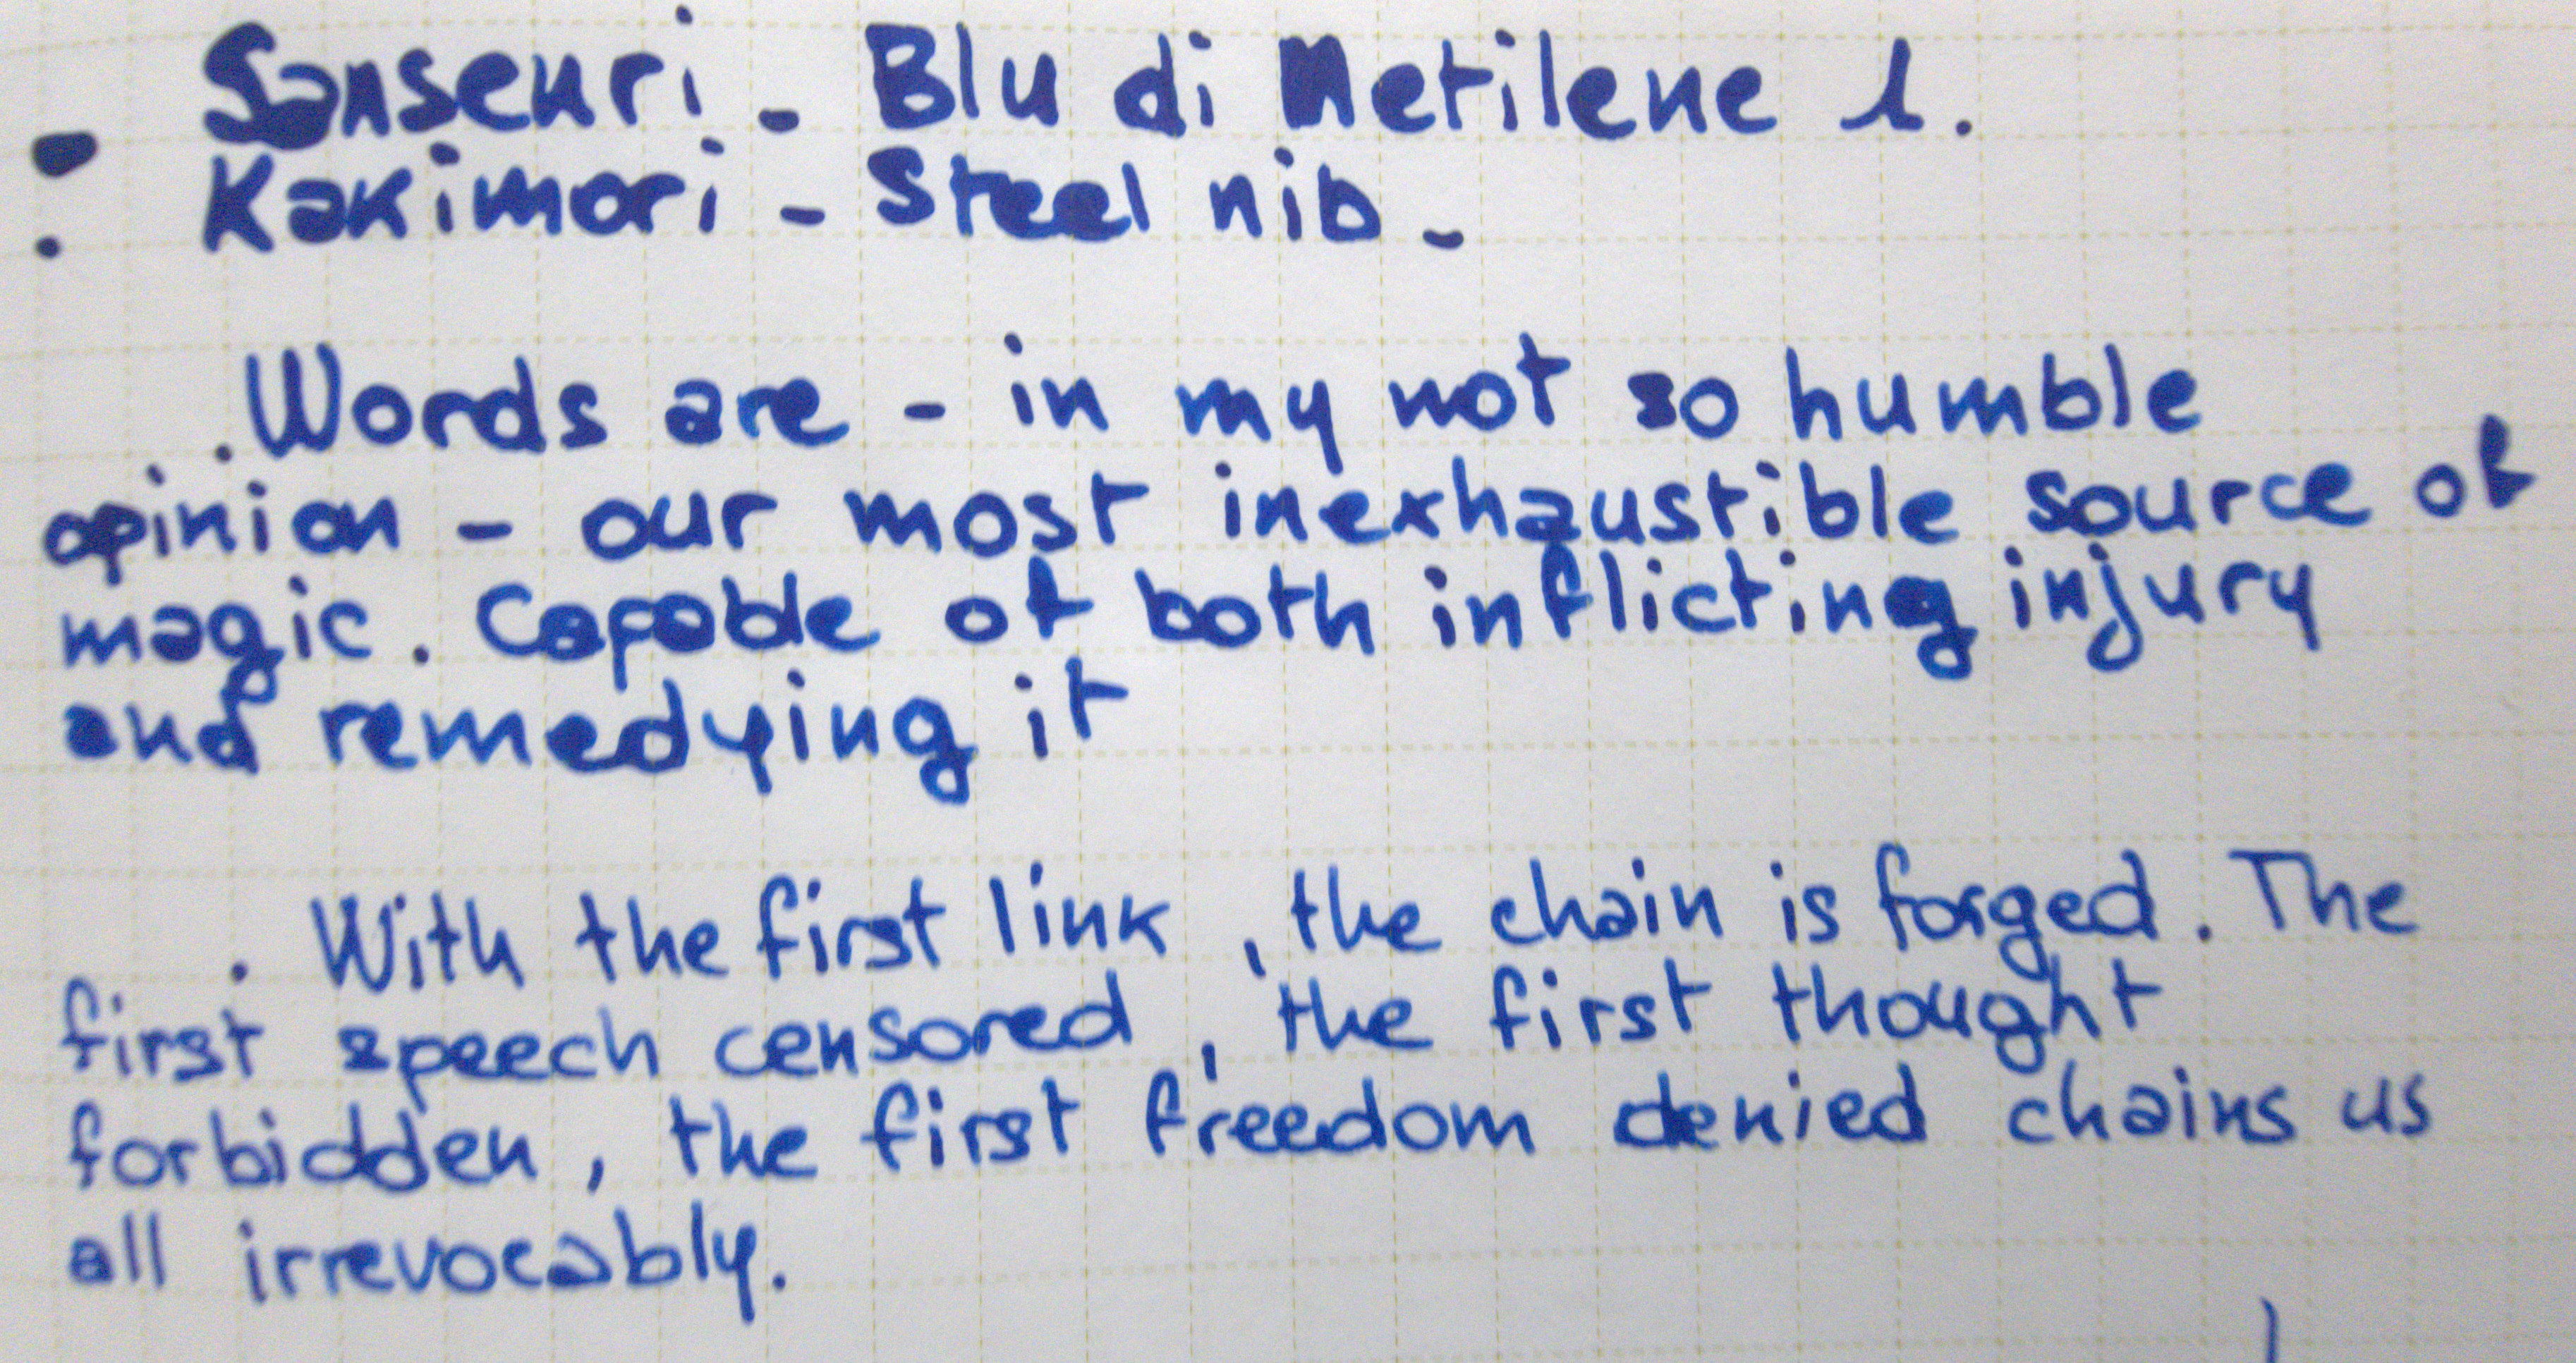 - Sansenri - Blu di Metilene 1.
. Kakimori - Steel nib -
. Words are - in my not so humble
opinion - our most inexhaustible source of
magic. Capable of both inflicting injury
and remedying it
. With the first link, the chain is forged. The
first speech censored, the first thought
forbidden, the first freedom denied chains us
all irrevocably.